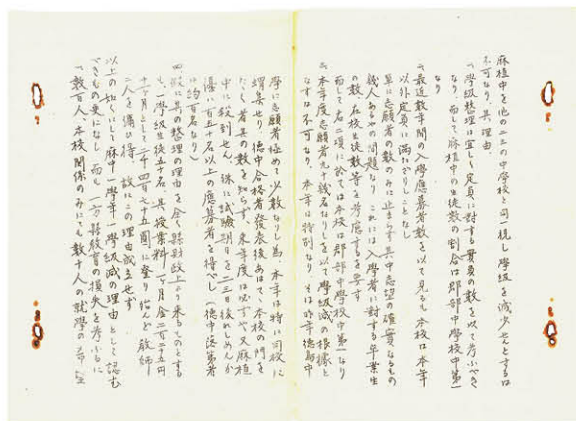 麻植中を他の二三の中学校と同視し学級を減少せんとするは
不可なり、其理由、
一、学級整理は宜しく定員に対する実員の数を以て考ふべき
なり、而して麻植中の生徒数の割合は郡部中学校中第一
なり
一、最近数年間の入学應募者数を以て見るも本校は本年
以外定員に満たざりしことなし
単に志願者の数のみに止まらず其中志望の確実なるもの
幾人あるやの問題なり これには入学者に対する卒業生
の数、在校生徒数等を考慮するを要す
而して右二項に於ては本校は郡部中学校中第一なり
一、本年度志願者九十幾名なりしを以て学級減の根據と
なすは不可なり、本年は特別なり、そは昨年徳島中
学に志願者極めて少数なりし為、本年は特に同校に
殺到せり、徳中合格者発表後あはてて本校の門を
たゝく者其の数を知らず、来年度は必ずや又麻植
中に殺到せん、殊に試験期日を二三日後れしめんか
優に一百五十名以上の應募者を得べし(徳中落第者
は約百名なり)
四、仮に其の整理の理由を全く県財政上より来るものとする
も、一学級生徒五十名、其授業料一ヶ月金二百二十五円
十一ヶ月として二千四百七十五円に登り殆んど教師
二人を傭ひ得、故にこの理由成立せず
以上の如くにして麻中一学年一学級減の理由として認む
べきもの更になし、而も一方県教育の損失を考ふるに
一、数百人、本校関係のみにても数十人の就学の希望